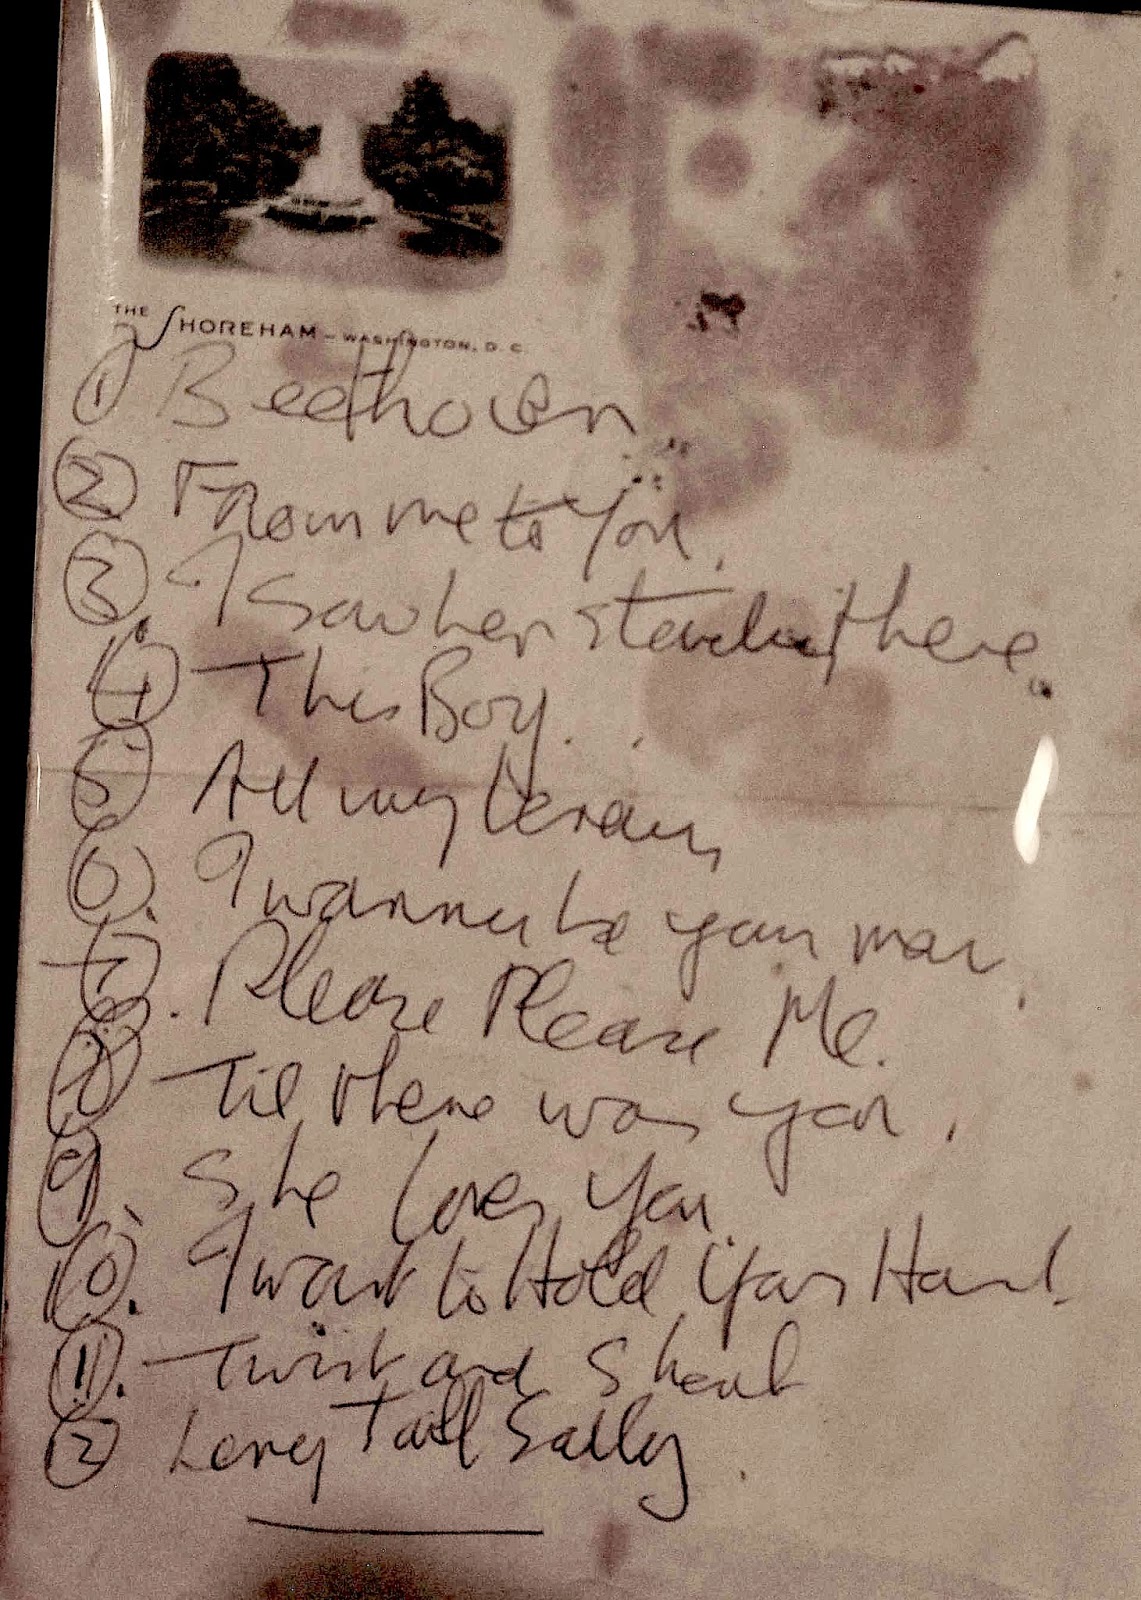 THE SHOREHAM – WASHINGTON, D. C.
1 Beethoven
2 From me to You.
3 I Saw her standing there.
4 This Boy.
5 All my loving
6. I wanna be your man
7. Please Please Me.
8 Til there was you.
9. She loves You
10. I want to Hold Your Hand.
11. Twist and Shout
12 Long Tall Sally.